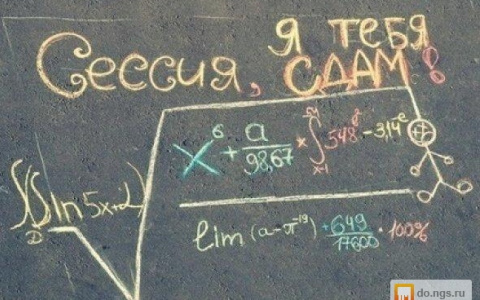 Сессия, я тебя
СДАМ!
x⁶ + a/98,67 × ∫ 548² - 3,14²
∬ ln 5x+2
D
lim (a-π⁻¹⁹) + 649/17600 · 100%
do.ngs.ru